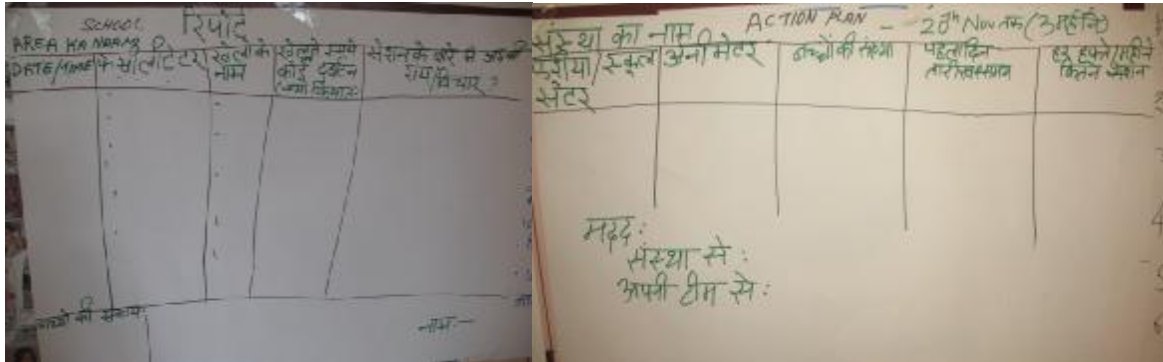 SCHOOL रिपोर्ट
AREA KA NAAM
DATE/TIME फेसीलीटेटर खेलों के नाम खेलते समय कोई दुर्घटना सेशन के बारे में अपनी राय/विचार
बच्चों की संख्या नाम:-
ACTION PLAN - 20th Nov तक (3 महीने)
संस्था का नाम
एरिया/स्कूल सेंटर अनीमेटर बच्चों की संख्या पहला दिन तारीख समय हर हफ्ते/महीने कितने सेशन
मदद:
संस्था से:
अपनी टीम से: